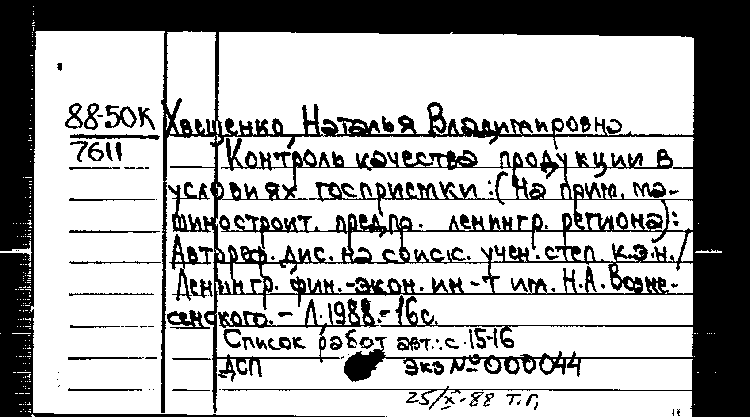 88-50К Хвещенко Наталья Владимировна
7611
Контроль качества продукции в
условиях госприемки: (На прим. ма-
шиностроит. предпр. ленингр. региона):
Автореф. дис. на соиск. учен. степ. к.э.н. /
Ленингр. фин.-экон. ин-т им. Н.А. Возне-
сенского. - Л. 1988. - 16с.
Список работ авт.: с. 15-16
ДСП экз № 000044
25/X-88 т.г.